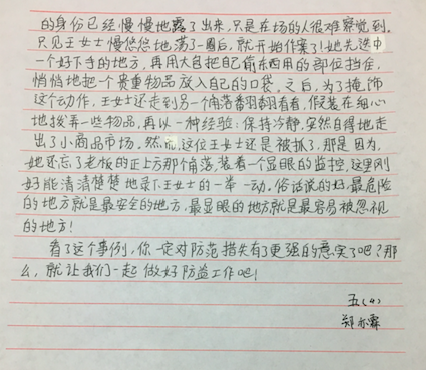 的身份已经慢慢地露了出来,只是在场的人很难察觉到。
只见王女士慢悠悠地荡了一圈后,就开始作案了!她先选中
一个好下手的地方,再用大包把自己偷东西用的部位挡住,
悄悄地把一个贵重物品放入自己的口袋。之后,为了掩饰
这个动作,王女士还走到另一个角落翻翻看看,假装在细心
地挨弄一些物品,再以一种经验:保持冷静,突然自得地走
出了小商品市场。然而,这位王女士还是被抓了,那是因为,
她还忘了老板的正上方那个角落,装着一个显眼的监控,这里刚
好能清清楚楚地录下王女士的一举一动。俗话说的好,最危险
的地方就是最安全的地方,最显眼的地方就是最容易被忽视
的地方!
看了这个事例,你一定对防范措失有了更强的意实了吧?那
么,就让我们一起做好防益工作吧!
五(4)
郑亦霖